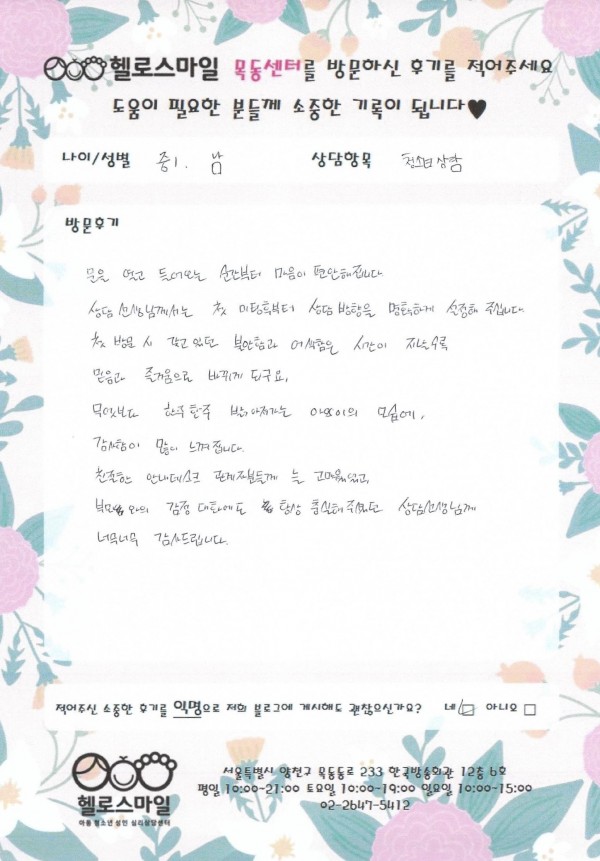 헬로스마일 목동센터를 방문하신 후기를 적어주세요
도움이 필요한 분들께 소중한 기록이 됩니다♥
나이/성별 중1. 남 상담항목 청소년 상담
방문후기
문을 열고 들어오는 순간부터 마음이 편안해집니다.
상담 선생님께서는 첫 미팅후부터 상담 방향을 명확하게 설정해 주십니다.
첫 방문 시 갖고 있던 불안함과 어색함은 시간이 지날수록
믿음과 즐거움으로 바뀌게 되구요,
무엇보다 한주 한주 밝아져가는 아이의 모습에,
감사함이 많이 느껴집니다.
친절한 안내데스크 관계자분들께 늘 고마웠었고,
부모와의 감정 대화에도 항상 충실해주셨던 상담선생님께
너무너무 감사드립니다.
적어주신 소중한 후기를 익명으로 저희 블로그에 게시해도 괜찮으신가요? 네 ☑ 아니요 □
헬로스마일
아동 청소년 성인 심리상담센터
서울특별시 양천구 목동동로 233 한국방송회관 12층 6호
평일 10:00~21:00 토요일 10:00~19:00 일요일 10:00~15:00
02-2647-5412